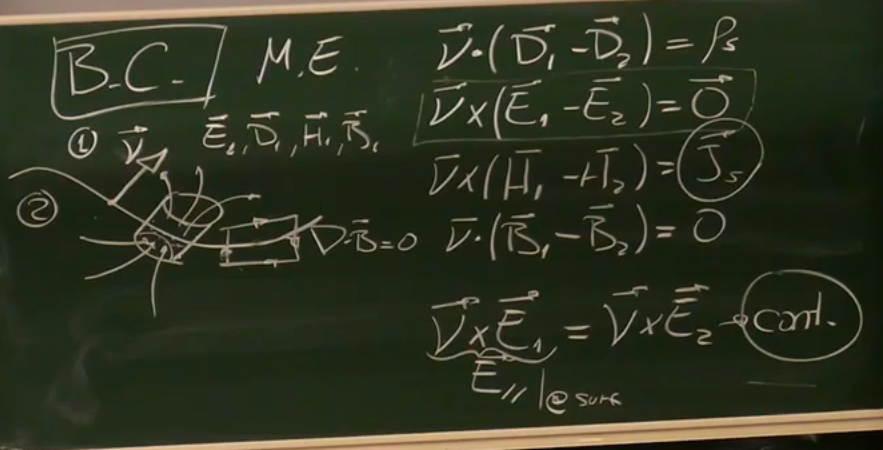 B.C. M.E.
① ν⃗ E⃗₁, D⃗₁, H⃗₁, B⃗₁
②
∇·B⃗=0
ν⃗·(D⃗₁-D⃗₂)=ρₛ
ν⃗×(E⃗₁-E⃗₂)=0⃗
ν⃗×(H⃗₁-H⃗₂)=J⃗ₛ
ν⃗·(B⃗₁-B⃗₂)=0
ν⃗×E⃗₁=ν⃗×E⃗₂→cont.
E⃗// |@ surf